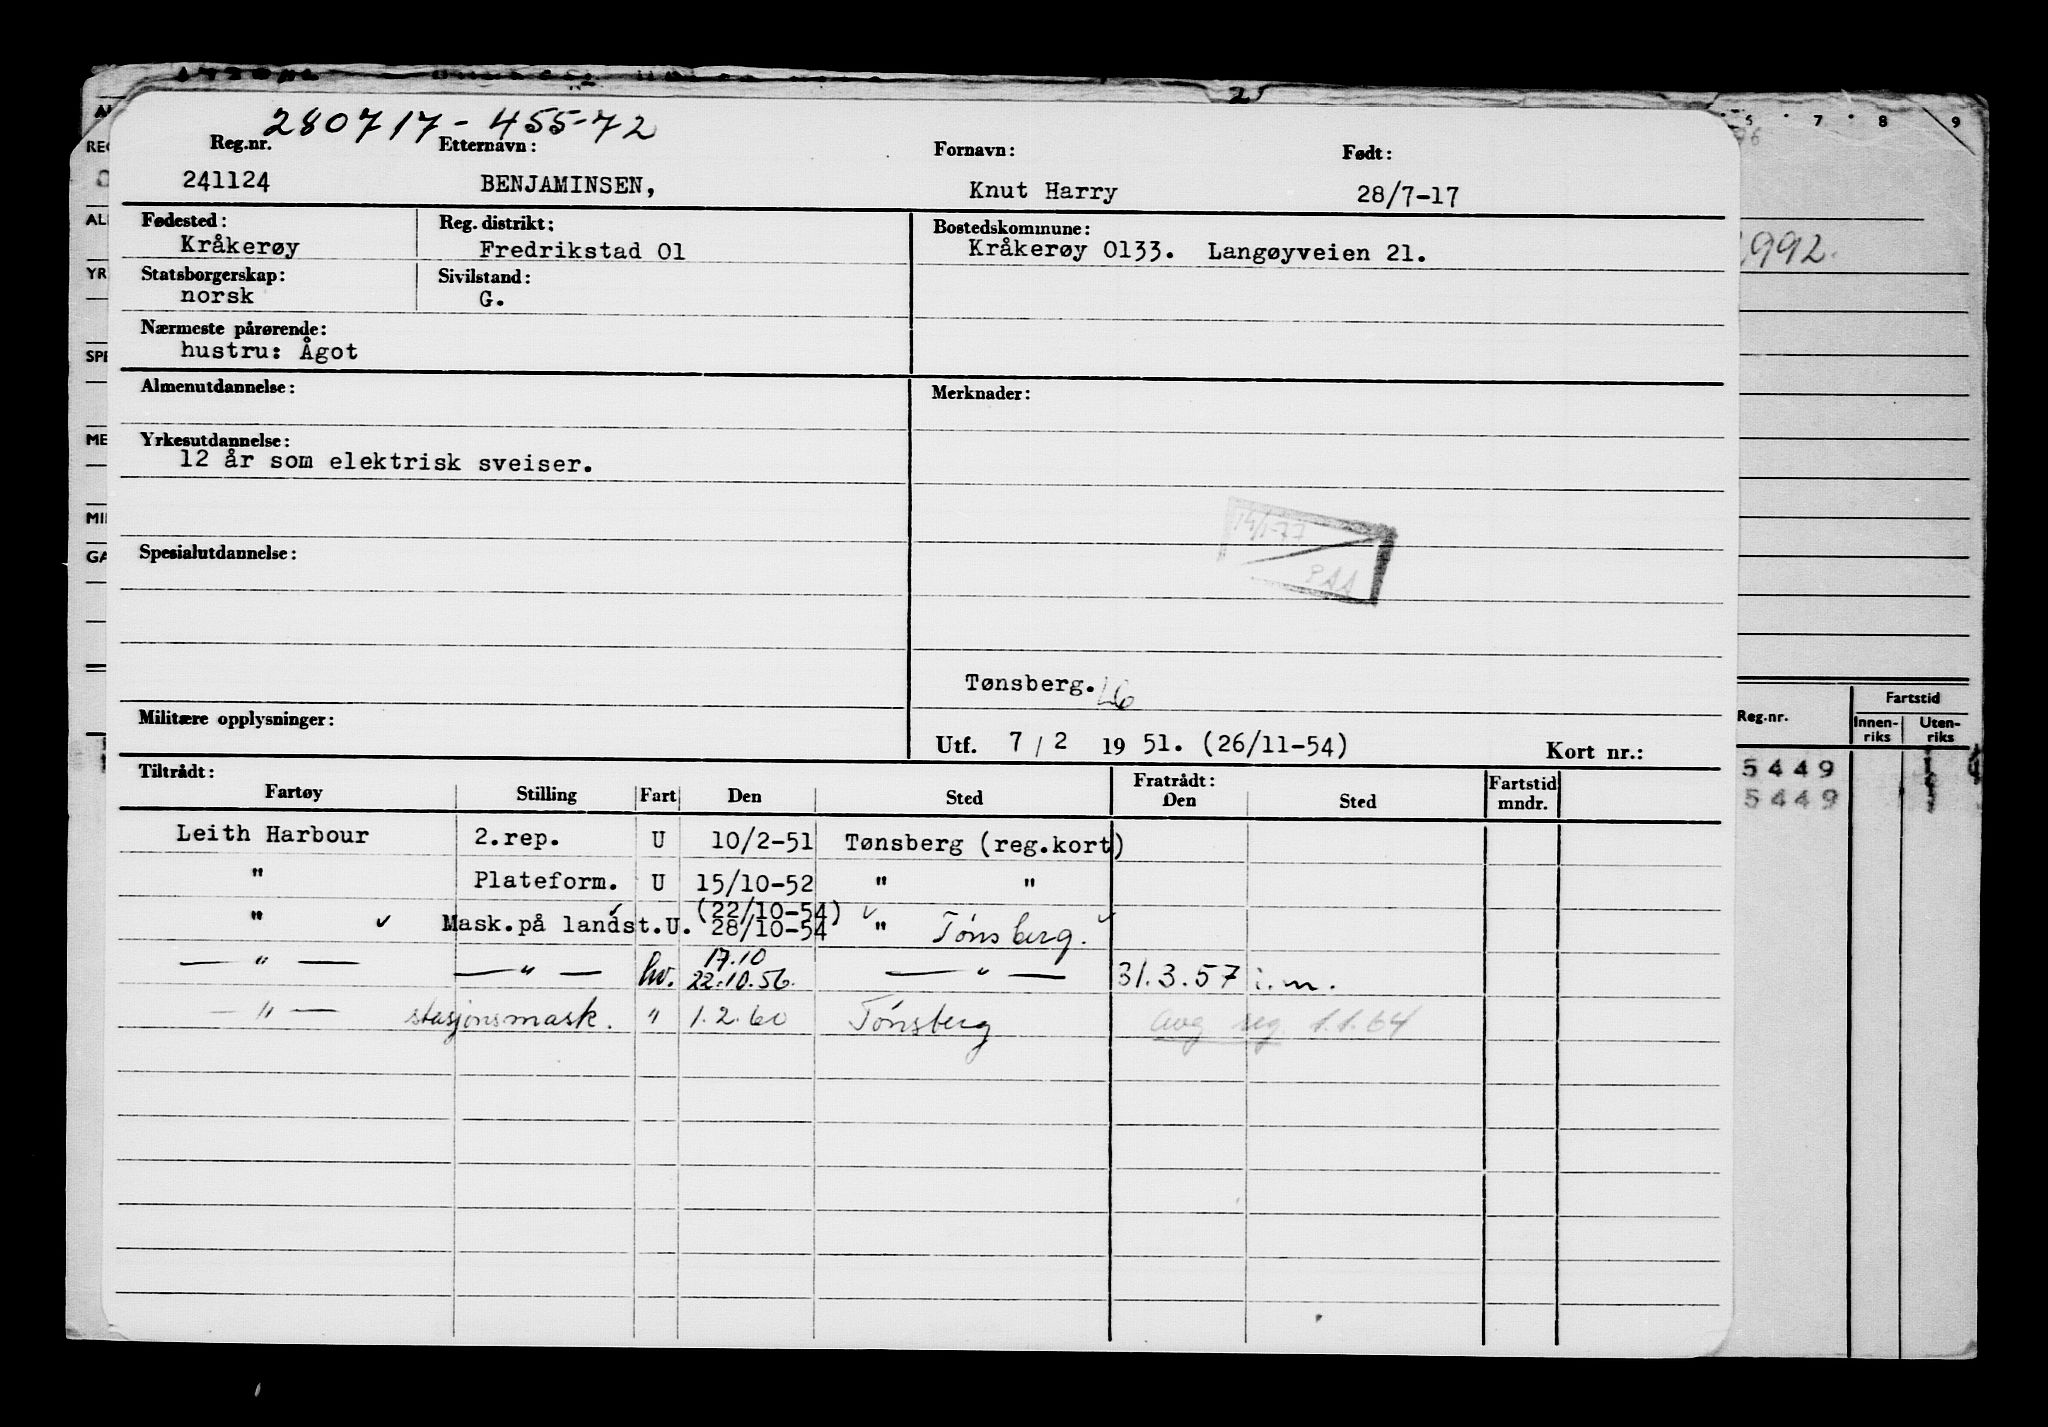 280717-455-72
Reg.nr. Etternavn: Fornavn: Født:
241124 BENJAMINSEN, Knut Harry 28/7-17
Fødested: Reg. distrikt: Bostedskommune:
Kråkerøy Fredrikstad 01 Kråkerøy 0133. Langøyveien 21.
Statsborgerskap: Sivilstand:
norsk G.
Nærmeste pårørende:
hustru: Ågot
Almenutdannelse: Merknader:
Yrkesutdannelse:
12 år som elektrisk sveiser.
14/1-77
PAA
Spesialutdannelse:
Tønsberg.
Militære opplysninger:
Utf. 7 / 2 19 51. (26/11-54) Kort nr.:
Tiltrådt: Fratrådt:
Fartøy Stilling Fart Den Sted Den Sted Fartstid mndr.
Leith Harbour 2.rep. U 10/2-51 Tønsberg (reg.kort)
" Plateform. U 15/10-52 " "
(22/10-54)
" ✓ Mask.på landst. U. 28/10-54 " Tønsberg.
17.10
— " — — " — hv. 22.10.56. — " — 31.3.57 i.m.
— " — stasjonsmask. " 1.2.60 Tønsberg avg reg. 1.1.64
2
5 7 8 9
1992.
REG
ALM
YR
SPE
ME
MI
GA
Reg.nr. Fartstid
Innen-riks Uten-riks
5449
5449